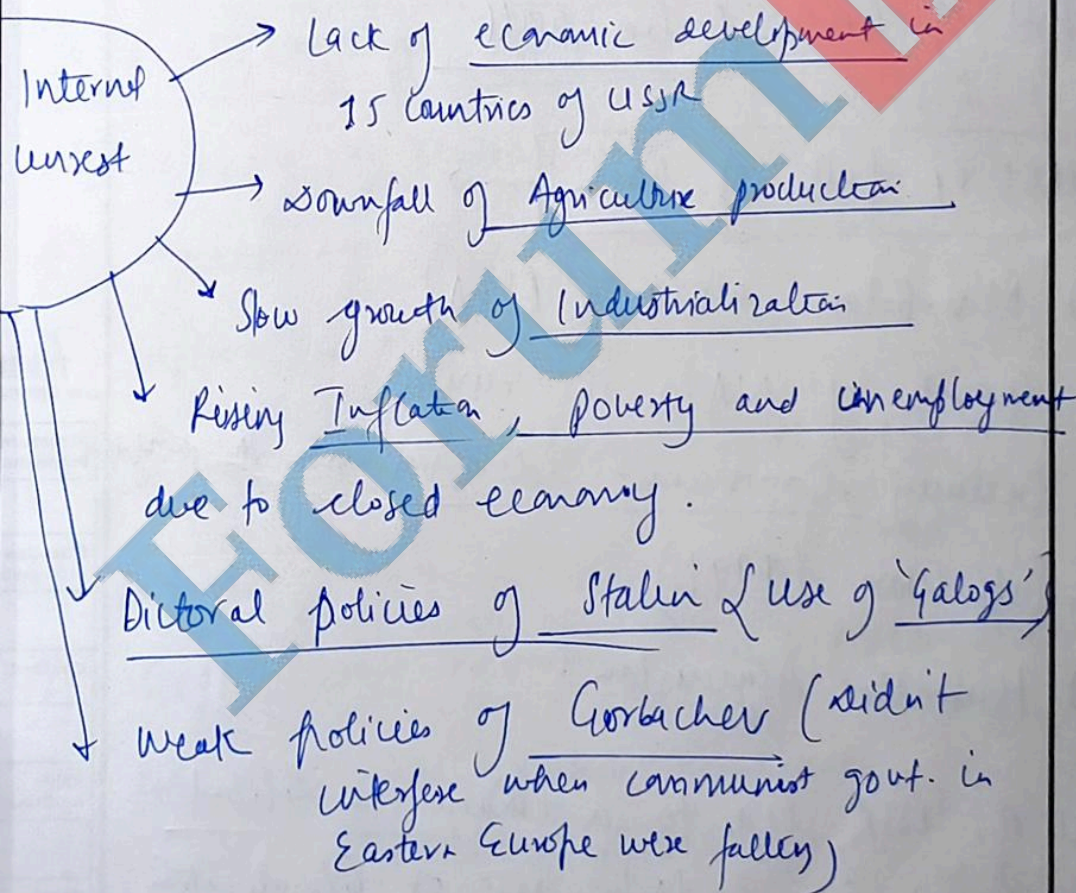 Internal
unrest
Lack of economic development in
15 Countries of USSR
Downfall of Agriculture production
Slow growth of Industrialization
Rising Inflation, poverty and unemployment
due to closed economy.
Dictoral policies of Stalin (use of 'Galogs')
Weak policies of Gorbachev (didn't
interfere when communist govt. in
Eastern Europe were falling)
Forum